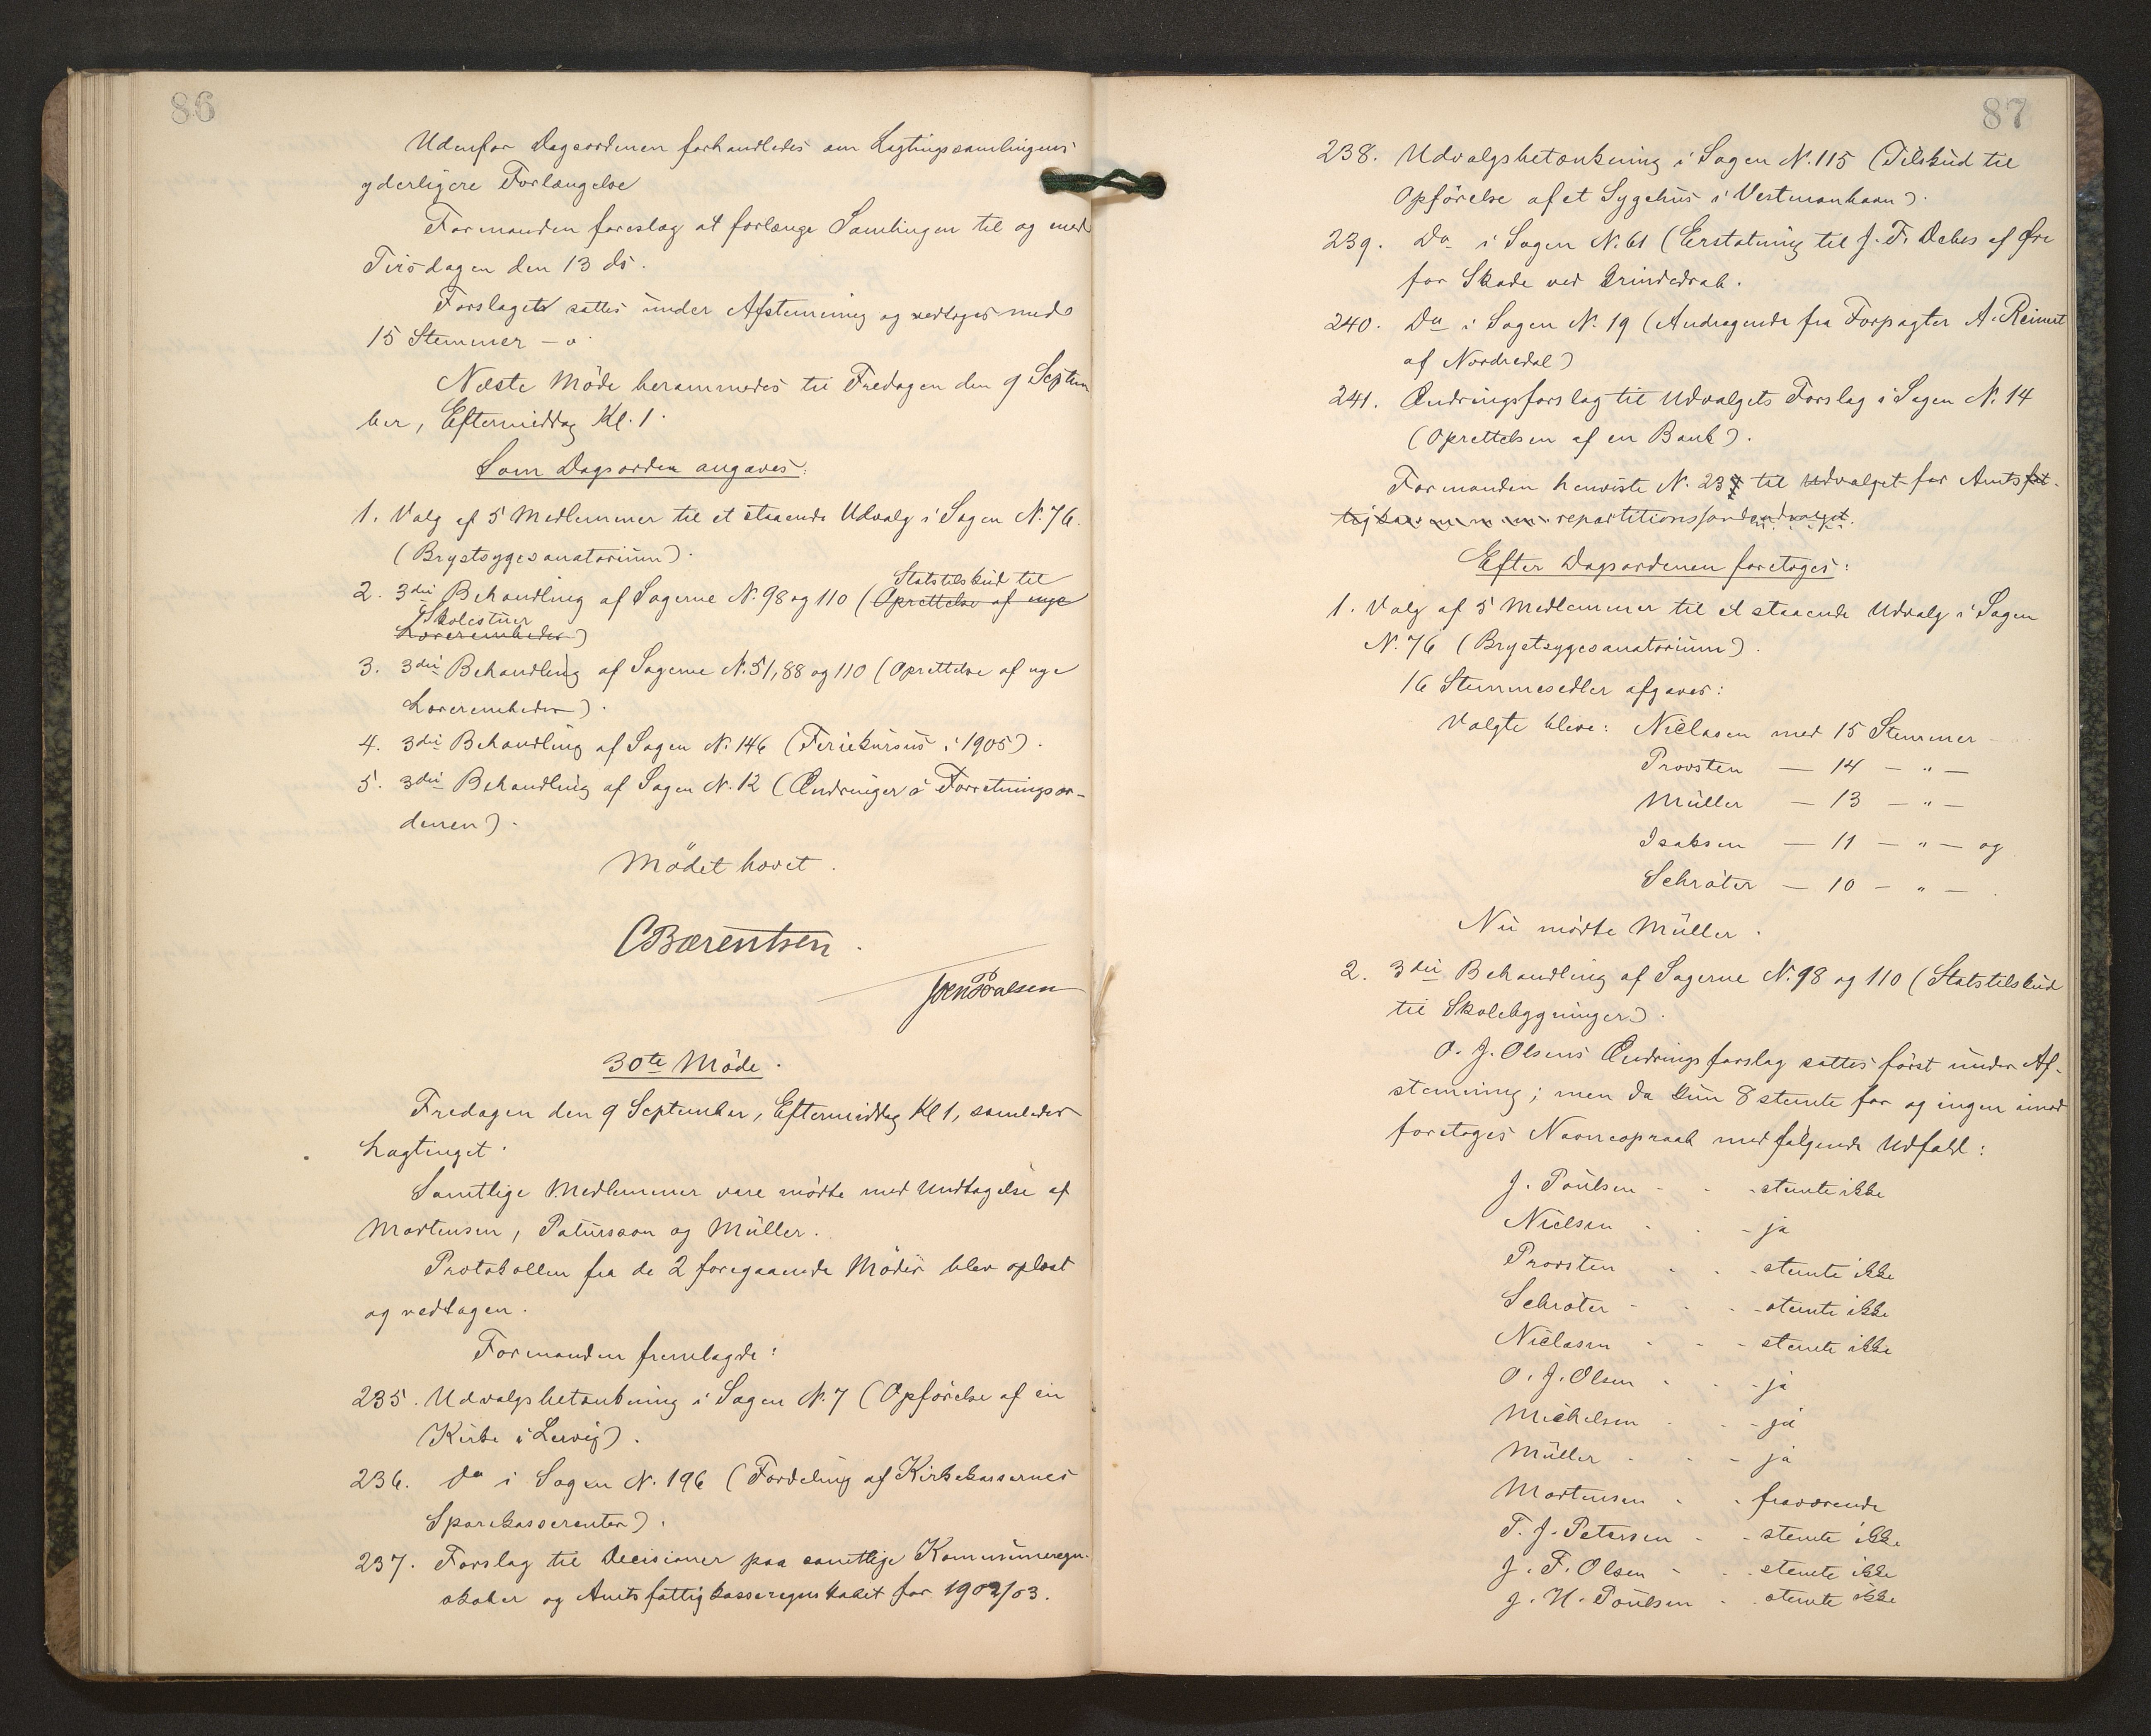 86
Udenfor Dagsordenen forhandledes om Lagtingssamlingens
yderligere Forlængelse
Formanden foreslog at forlænge Samlingen til og med
Tirsdagen den 13 ds.
Forslaget sattes under Afstemning og vedtoges med
15 Stemmer – o.
Næste Möde berammedes til Fredagen den 9 Septem
ber, Eftermiddag Kl. 1.
Som Dagsorden angaves:
1. Valg af 5 Medlemmer til et staaende Udvalg i Sagen N. 76.
(Brystsygesanatorium).
Statstilskud til
2. 3die Behandling af Sagerne N. 98 og 110 (Oprettelse af nye
Skolestuer
Lærerembeder)
3. 3die Behandling af Sagerne N. 51, 88 og 110 (Oprettelse af nye
Lærerembeder).
4. 3die Behandling af Sagen N. 146 (Feriekursus i 1905).
5. 3die Behandling af Sagen N. 12 (Ændringer i Forretningsor-
denen).
Mödet hævet.
CBærentsen.
JensPoulsen
30te Möde.
Fredagen den 9 September, Eftermiddag Kl 1, samledes
Lagtinget.
Samtlige Medlemmer vare mödte med Undtagelse af
Mortensen, Patursson og Müller.
Protokollen fra de 2 foregaaende Möder blev oplæst
og vedtagen.
Formanden fremlagde:
235. Udvalgsbetænkning i Sagen N. 7 (Opförelse af en
Kirke i Lervig).
236. Do i Sagen N. 196 (Fordeling af Kirkekassernes
Sparekasserenter).
237. Forslag til Decisioner paa samtlige Kommuneregn-
skaber og Amtsfattigkasseregnskabet for 1902/03.
87
238. Udvalgsbetænkning i Sagen N. 115 (Tilskud til
Opförelse af et Sygehus i Vestmanhavn).
239. Do i Sagen N. 61 (Erstatning til J. F. Debes af Öre
for Skade ved Grindedrab.
240. Do i Sagen N. 19 (Andragende fra Forpagter A. Reinert
af Nordredal)
241. Ændringsforslag til Udvalgets Forslag i Sagen N. 14
(Oprettelsen af en Bank).
Formanden henviste N. 237 til Udvalget for Amtsfat-
tigkassen repartitionsfondudvalget.
Efter Dagsordenen foretoges:
1. Valg af 5 Medlemmer til et staaende Udvalg i Sagen
N. 76 (Brystsygesanatorium).
16 Stemmesedler afgaves:
Valgte bleve: Niclasen med 15 Stemmer
Provsten — 14 — " —
Müller — 13 — " —
Isaksen — 11 — " — og
Schröter — 10 — " — .
Nu mödte Müller.
2. 3die Behandling af Sagerne N. 98 og 110 (Statstilskud
til Skolebygninger).
O. J. Olsens Ændringsforslag sattes först under Af-
stemning; men da kun 8 stemte for og ingen imod
foretoges Navneopraab med fölgende Udfald:
J. Poulsen - - - stemte ikke
Nielsen - - - ja
Provsten - - - stemte ikke
Schröter - - - stemte ikke
Niclasen - - - stemte ikke
O. J. Olsen - - - ja
Michelsen - - - ja
Müller - - - ja
Mortensen - - fraværende
T. J. Petersen - - stemte ikke
J. F. Olsen - - stemte ikke
J. H. Poulsen - - stemte ikke